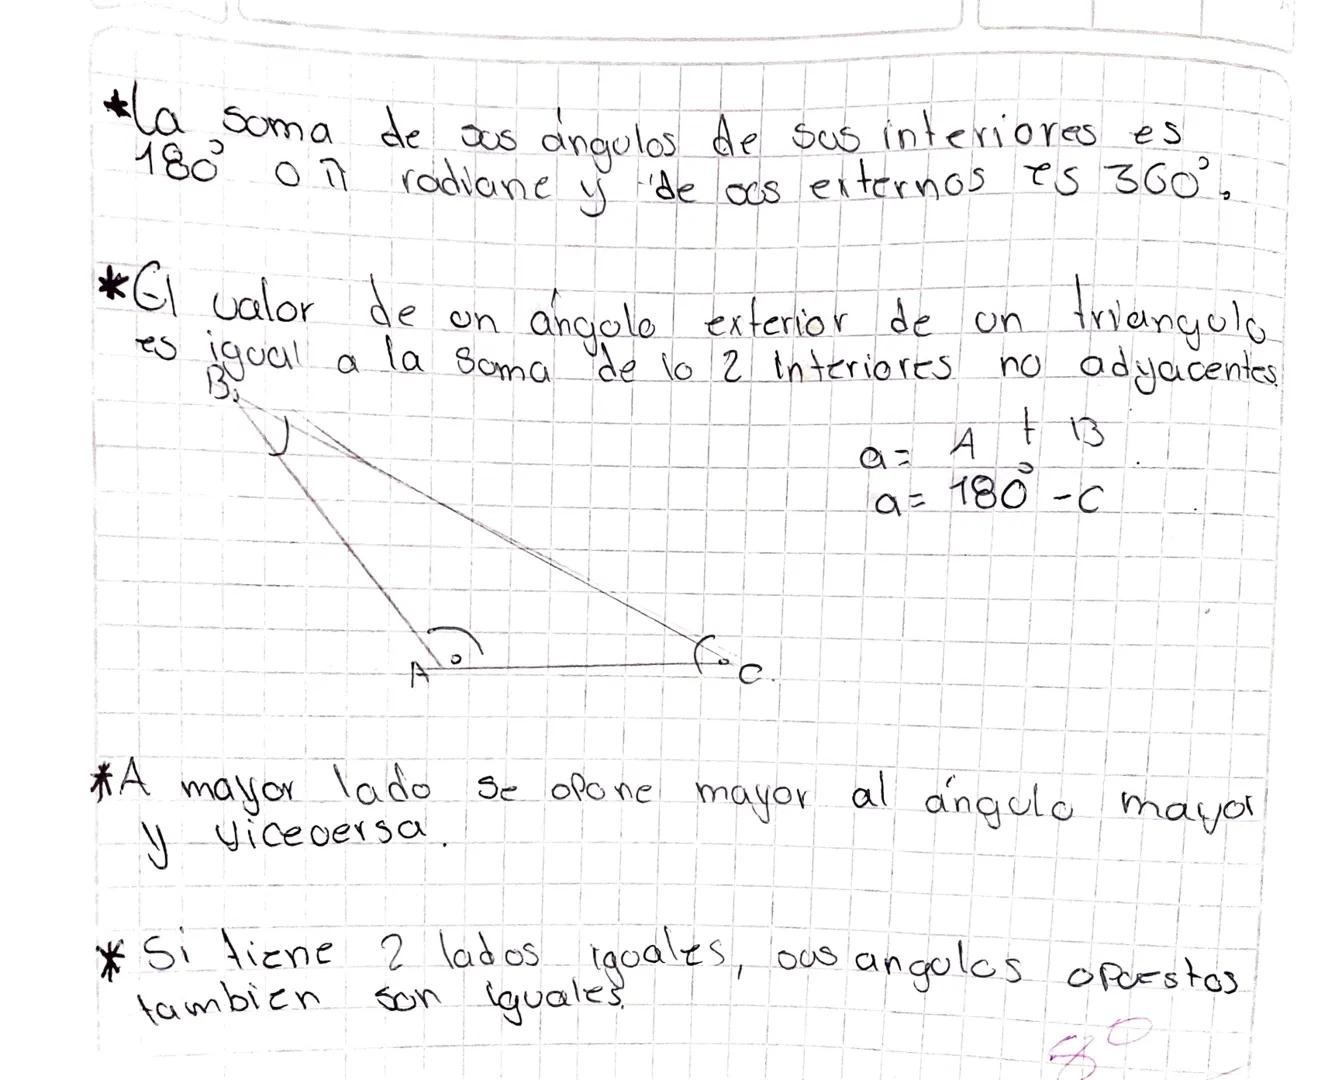 *La soma de sus ángulos de sus interiores es
180° o π radiane y de sus externos es 360°.
*El valor de un ángulo exterior de un triangulo
es igual a la soma de lo 2 interiores no adyacentes
B
a= A + B
a= 180° -C
A
C.
*A mayor lado se opone mayor al ángulo mayor
y viceversa.
* Si tiene 2 lados iguales, sus angulos opuestos
tambien son iguales.